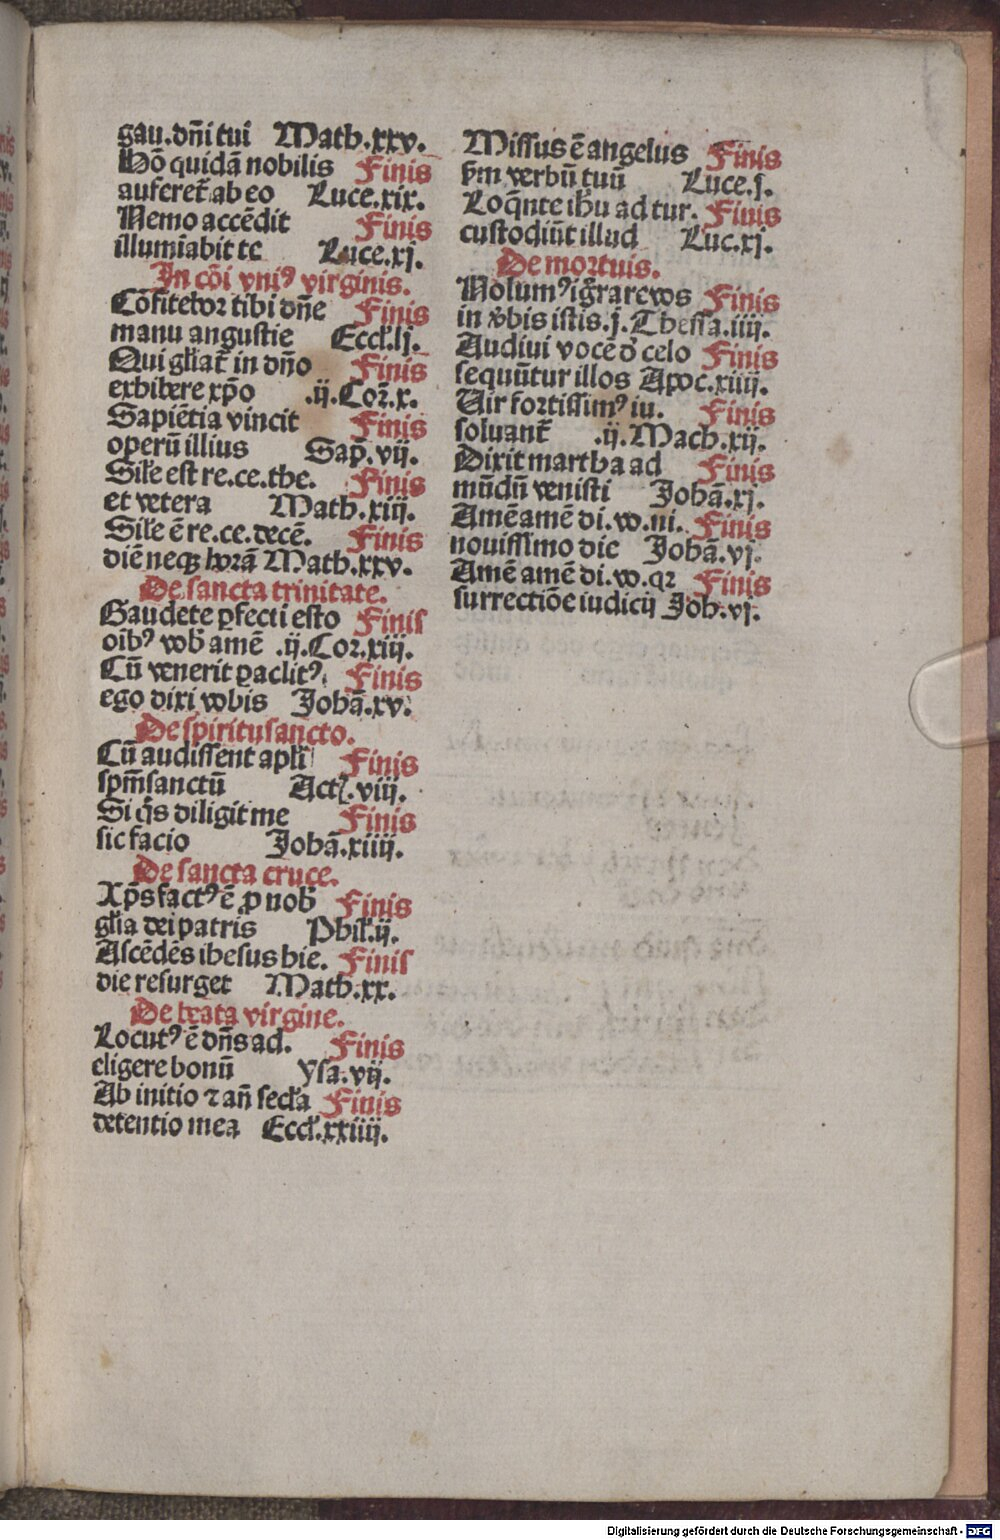 gau.dñi tui Math.xxv.
Hõ quidã nobilis Finis
auferet᷑ ab eo Luce.xix.
Nemo accẽdit Finis
illumiabit te Luce.xj.
In cõi vniꝰ virginis.
Cõfitebor tibi dñe Finis
manu angustie Eccł.lj.
Qui głiat᷑ in dño Finis
exhibere xp̃o .ij.Cor̃.x.
Sapiẽtia vincit Finis
operũ illius Sap̃.vij.
Sile est re.ce.the. Finis
et vetera Math.xiij.
Sile ẽ re.ce.decẽ. Finis
diẽ neqꝫ horã Math.xxv.
De sancta trinitate.
Gaudete ꝑfecti esto Finis
oĩbꝰ vob̃ amẽ .ij.Cor.xiij.
Cũ venerit paclitꝰ Finis
ego dixi vobis Johã.xv.
De spiritusancto.
Cũ audissent apłi Finis
spm̃sanctũ Act.viij.
Si q̃s diligit me Finis
sic facio Johã.xiiij.
De sancta cruce.
Xp̃s factꝰ ẽ ꝓ nob̃ Finis
głia dei patris Phił.ij.
Ascẽdẽs ihesus hie. Finis
die resurget Math.xx.
De beata virgine.
Locutꝰ ẽ dñs ad. Finis
eligere bonũ Ysa.vij.
Ab initio ⁊ añ secła Finis
detentio mea Eccł.xxiiij.
Missus ẽ angelus Finis
ẜm verbũ tuũ Luce.j.
Loq̃nte ihũ ad tur. Finis
custodiũt illud Luc.xj.
De mortuis.
Nolumꝰ ig̃rare vos Finis
in v̾bis istis.j.Thessa.iiij.
Audivi vocẽ d̾ celo Finis
sequũtur illos Apoc.xiiij.
Uir fortissimꝰ iu. Finis
soluant᷑ .ij.Mach.xij.
Dixit martha ad Finis
mũdũ venisti Johã.xj.
Amẽ amẽ di.vo.ni. Finis
nouissimo die Johã.vj.
Amẽ amẽ di.vo.qꝛ Finis
surrectiõe iudicij Joh.vj.
Digitalisierung gefördert durch die Deutsche Forschungsgemeinschaft - DFG